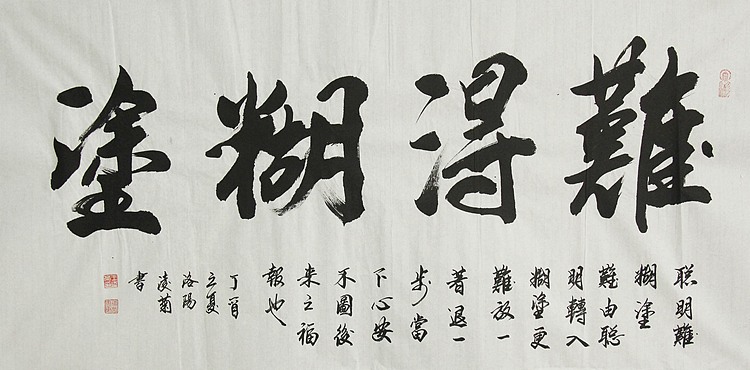 難得糊塗
聪明難
糊塗
難由聪
明轉入
糊塗更
難放一
著退一
步當
下心安
不圖後
来之福
報也
丁酉
之夏
洛陽
凌菊
書